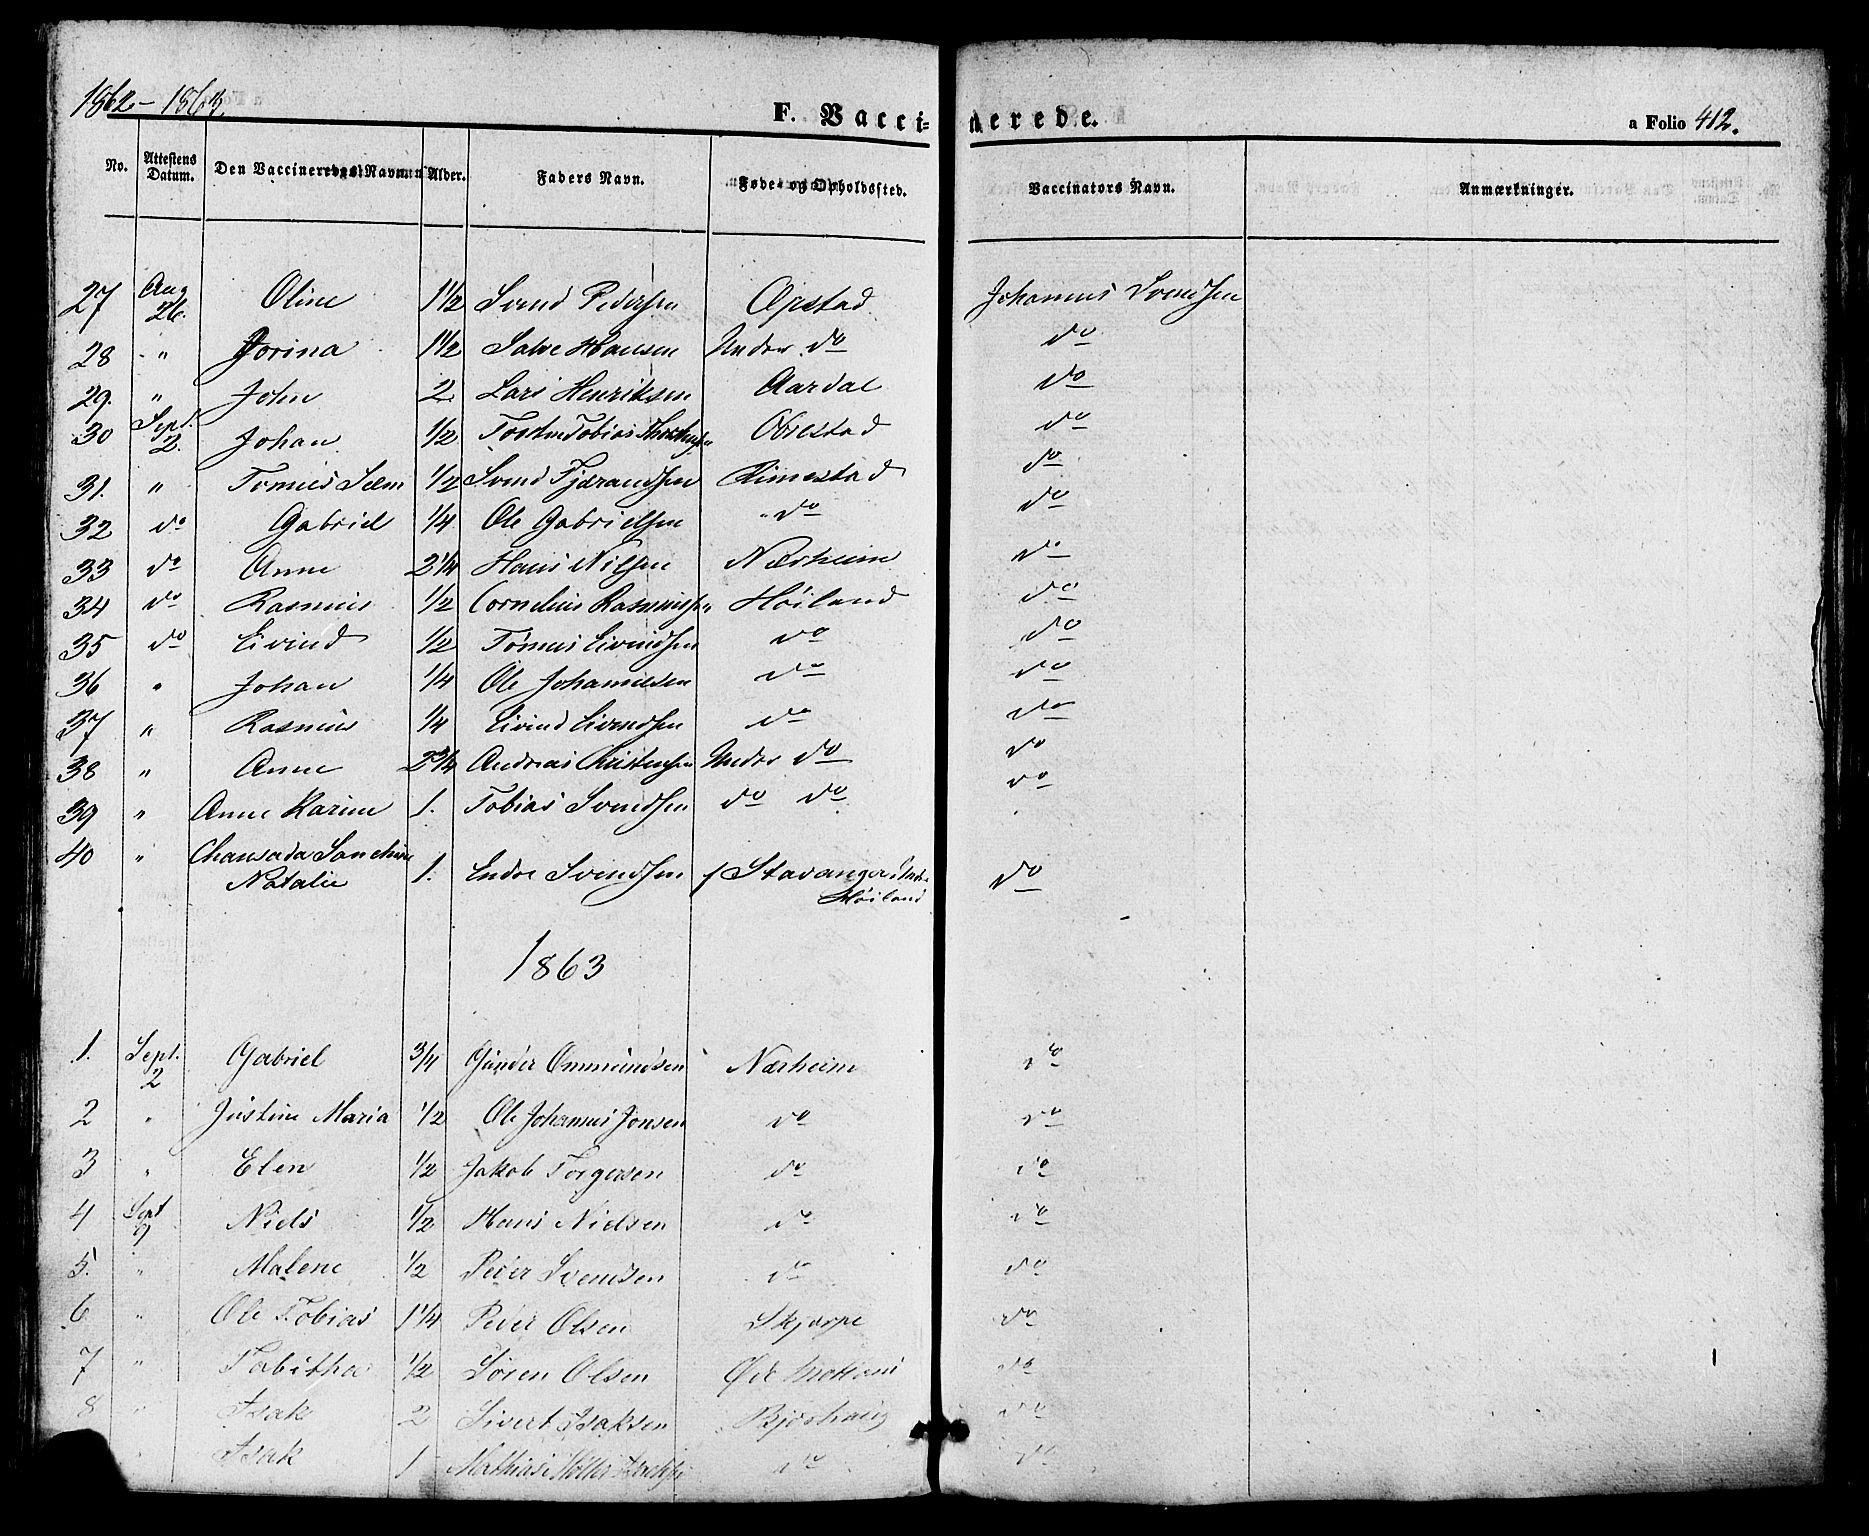 1862 - 1863.
F. Vaccinerede. a Folio 412.
No. Attestens Datum. Den Vaccineredes Navn. Alder. Faders Navn. Føde- og Opholdssted. Vaccinators Navn. Anmærkninger.
27 Aug 26. Oline 1 1/2 Svend Pedersen Opstad Johannes Svendsen
28 " Jorina 1 1/2 Salve Hansen Under do do
29. " John 2 Lars Henriksen Aardal do
30 Sept. 2. Johan 1/2 Tobias Obrestad do
31. " 1/2 Svend Tjerandsen Rimestad do
32 do Gabriel 1/4 Ole Gabrielsen do do
33 do Anne 2 1/4 Hans Nilsen Nærheim do
34 do Rasmus 1/2 Cornelius Rasmussen Höiland do
35 do Eivind 1/2 Tönnes Eivindsen do do
36 " Johan 1/4 Ole Johannesen do do
37 " Rasmus 1/4 Eivind Eivendsen do do
38 " Anne 2 3/4 Andreas Christensen Under do do
39 " Anne Karine 1. Tobias Svendsen do do do
40 " Natalie 1. Endre Svendsen f Stavanger Höiland do
1863
1. Sept. 2 Gabriel 3/4 Gunder Ommundsen Nærheim do
2 " Justine Maria 1/2 Ole Johannes Jonsen do do
3 " Elen 1/2 Jakob Torgersen do do
4 Sept 9 Niels 1/2 Hans Nielsen do do
5. " Malene 1/2 Peder Svendsen do do
6 " Ole Tobias 1 1/4 Peder Olsen Skjærpe do
7 " Tabitha 1/2 Sören Olsen do
8 " Isak 2 Sivert Isaksen Bjorhaug do
" Isak 1 Mathias do do